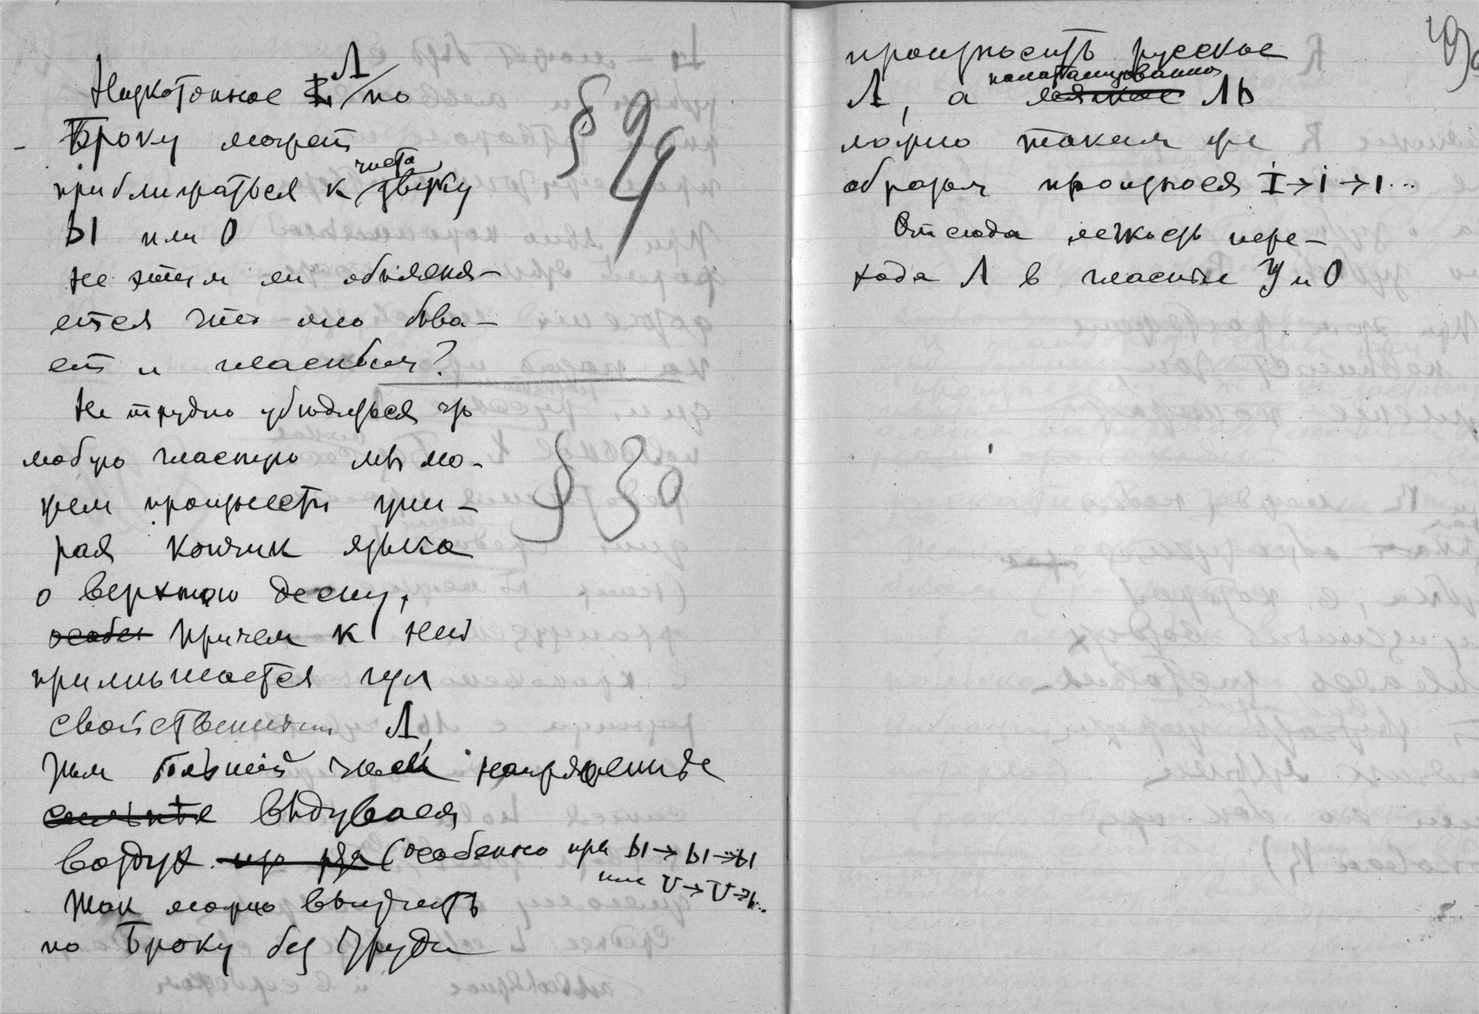 Низкотонное Л / по
§ 29
Броку может
чисто
приближаться к звуку
Ы или О
Не этим ли объясня-
ется что оно быва-
ет и гласным?
Не трудно убедиться что
любую гласную мы мо-
§ 30
жем произнести упи-
рая кончик языка
о верхнюю десну,
особен причем к ней
примешивается гул
свойственный Л,
чем напряженнее
выдувался
воздух (особенно при Ы→Ы→Ы
или U→U→L..
Так можно выучить
по Броку без труда
произносить русское
палатализованное
Л, а мягкое ЛЬ
можно таким же
образом произнося I→i→ı...
Отсюда легкость пере-
хода Л в гласные У и О